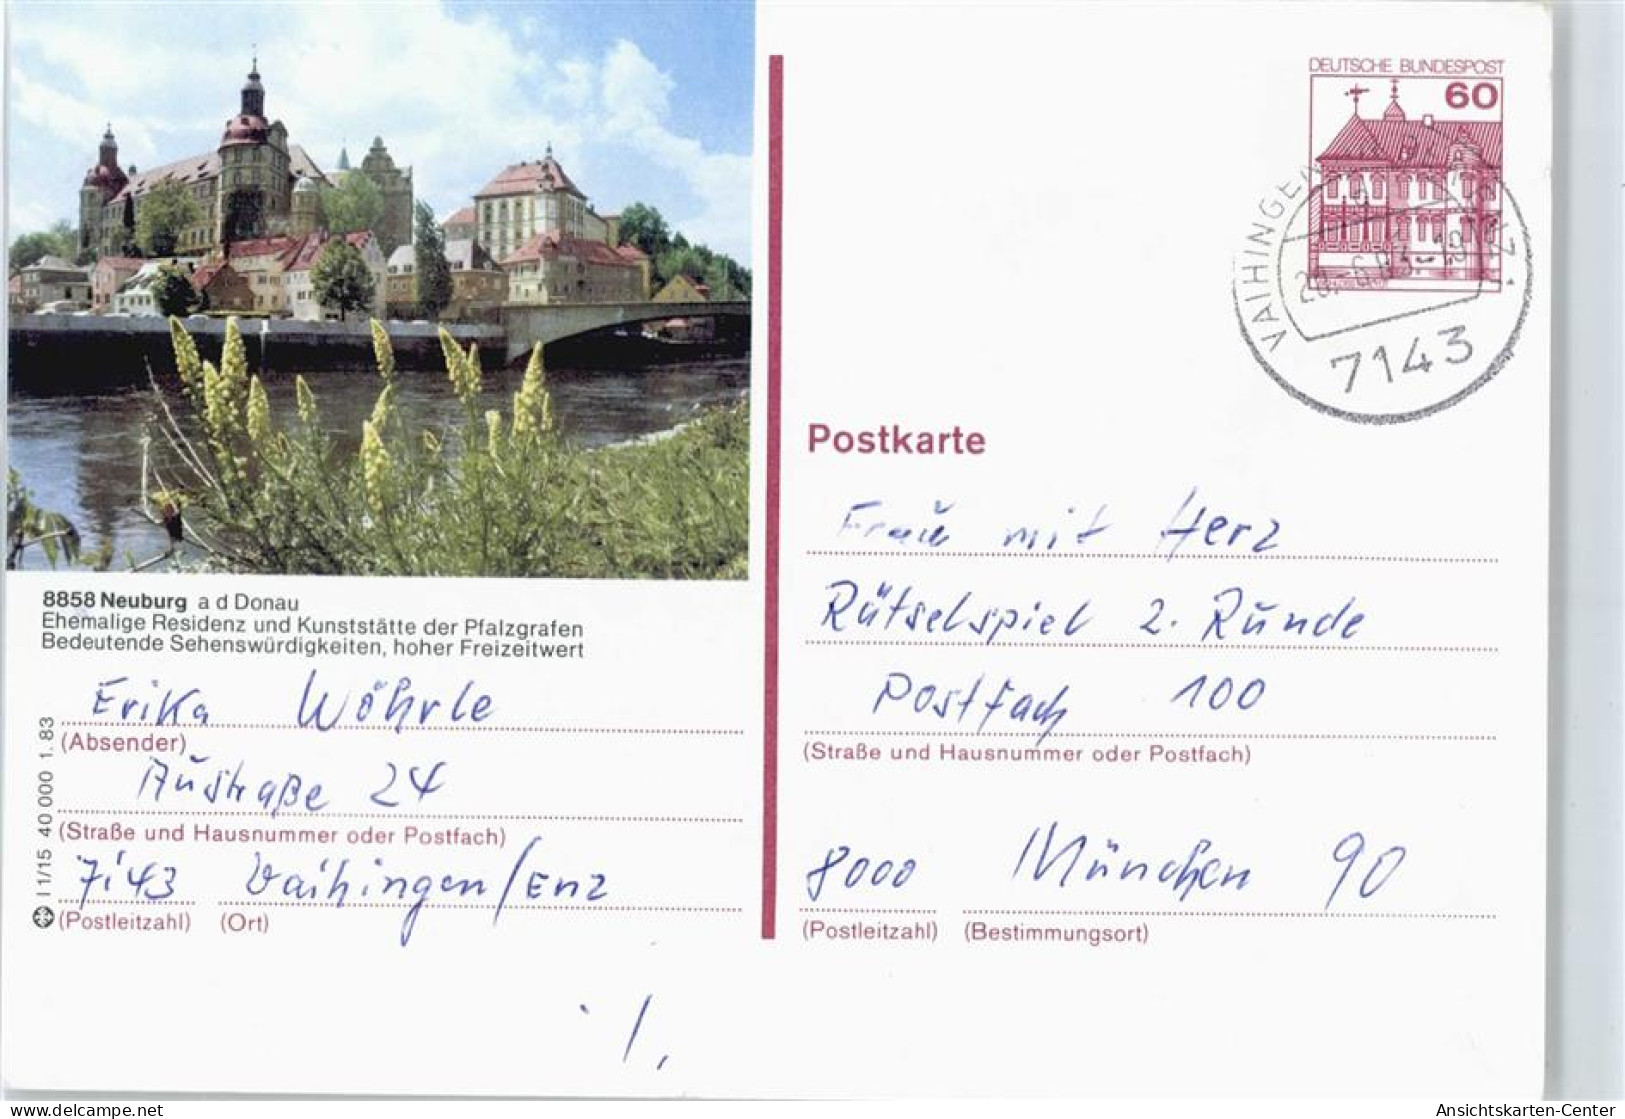 DEUTSCHE BUNDESPOST
60
VAIHINGEN
7143
Postkarte
Frau mit Herz
Rätselspiel 2. Runde
Postfach 100
(Straße und Hausnummer oder Postfach)
8000 München 90
(Postleitzahl) (Bestimmungsort)
8858 Neuburg a d Donau
Ehemalige Residenz und Kunststätte der Pfalzgrafen
Bedeutende Sehenswürdigkeiten, hoher Freizeitwert
Erika Wöhrle
(Absender)
Austraße 24
(Straße und Hausnummer oder Postfach)
7143 Vaihingen/Enz
(Postleitzahl) (Ort)
I 1/15 40 000 1.83
Ansichtskarten-Center